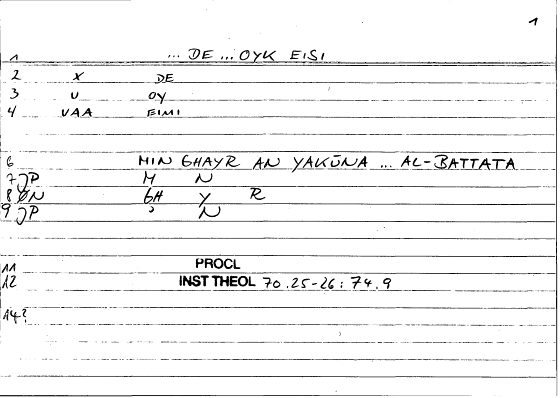 1
1 ... DE ... OYK EISI
2 X DE
3 U OY
4 VAA EIMI
6 MIN GHAYR AN YAKŪNA ... AL-BATTATA
7 JP M N
8 ØN GH Y R
9 JP ' N
11 PROCL
12 INST THEOL 70.25-26: 74.9
14?